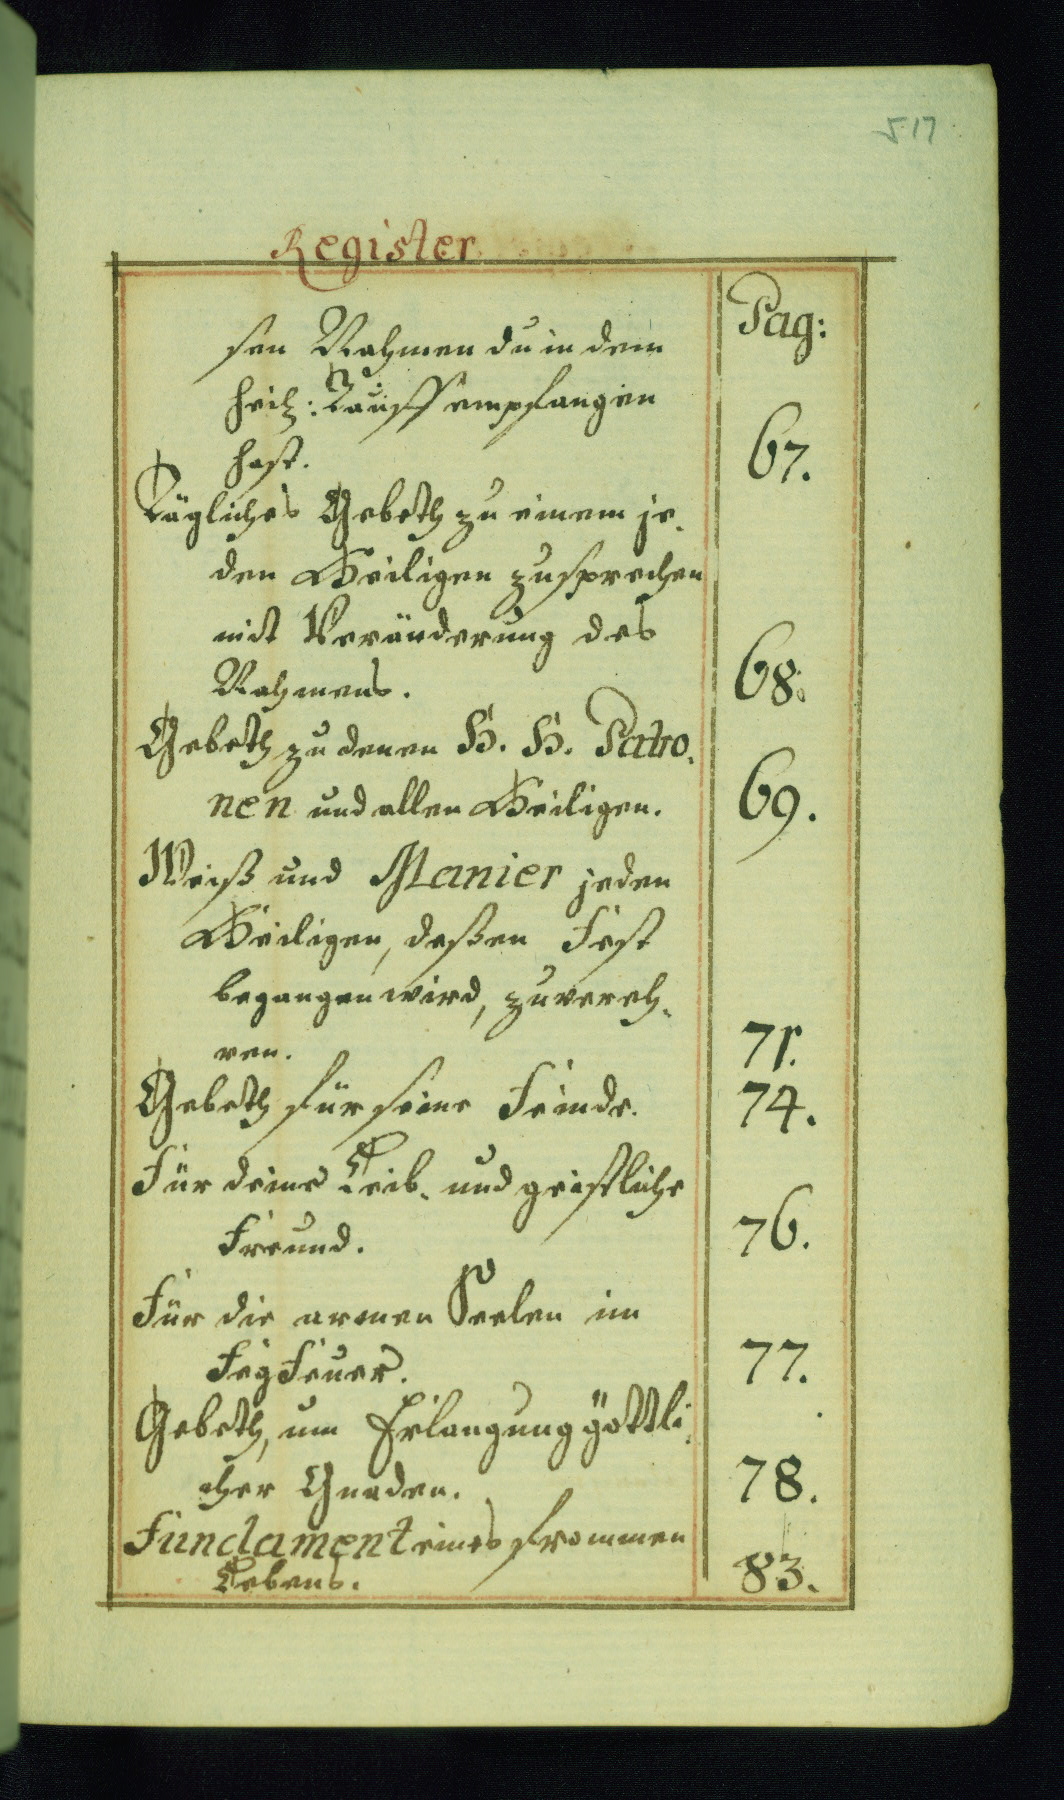 517
Register
Pag:
sen Nahmen du in dem
heil: Tauff empfangen
hast. 67.
Tägliches Gebeth zu einem je-
den Heiligen zusprechen
mit Veränderung des
Nahmens. 68.
Gebeth zu denen H. H. Patro-
nen und allen Heiligen. 69.
Weiß und Manier jeden
Heiligen, deßen Fest
begangen wird, zuvereh-
ren. 71.
Gebeth für seine Feinde. 74.
Für deine Leib- und geistliche
Freund. 76.
Für die armen Seelen im
FegFeuer. 77.
Gebeth, um Erlangung göttli-
cher Gnaden. 78.
Fundament eines frommen
Lebens. 83.